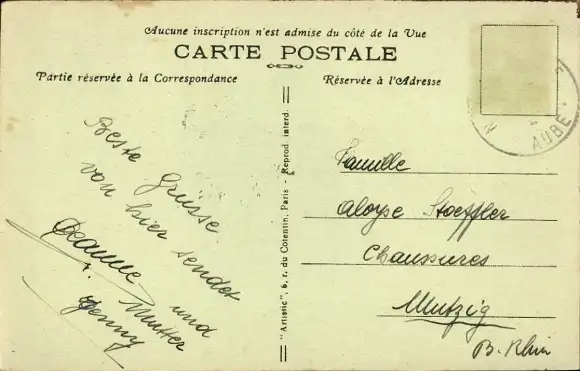 Aucune inscription n'est admise du côté de la Vue
CARTE POSTALE
Partie réservée à la Correspondance
Réservée à l'Adresse
Beste Grüsse
von hier sendet
Jeanne und
r. Mutter
Jenny
"Artistic", 6, r. du Cotentin, Paris - Reprod. interd.
AUBE
Famille
Aloyse Stoeffler
Chaussures
Mutzig
B. Rhin